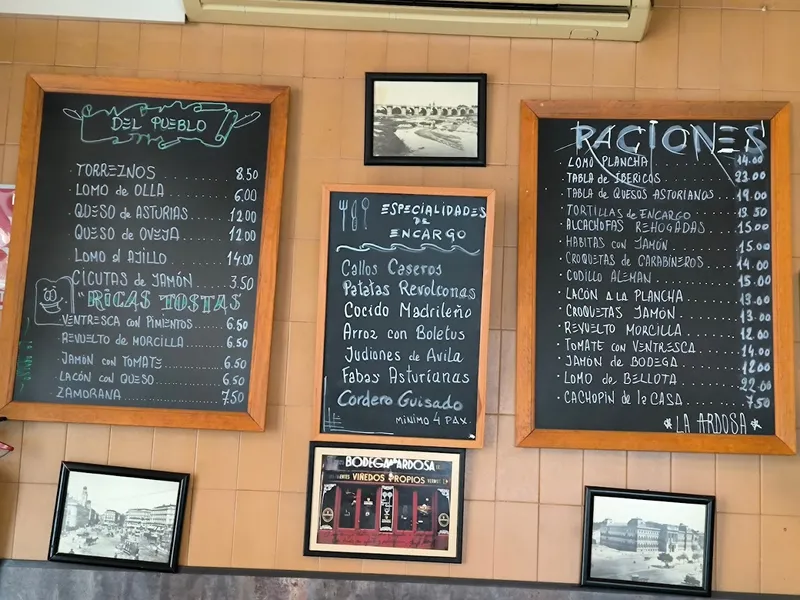 DEL PUEBLO
TORREZNOS 8.50
LOMO de OLLA 6.00
QUESO de ASTURIAS 12.00
QUESO de OVEJA 12.00
LOMO al AJILLO 14.00
CICUTAS de JAMÓN 3.50
"RICAS TOSTAS
VENTRESCA con PIMIENTOS 6.50
REVUELTO de MORCILLA 6.50
JAMÓN con TOMATE 6.50
LACÓN con QUESO 6.50
ZAMORANA 7.50
ESPECIALIDADES
DE
ENCARGO
Callos Caseros
Patatas Revolconas
Cocido Madrileño
Arroz con Boletus
Judiones de Avila
Fabas Asturianas
Cordero Guisado
MINIMO 4 PAX.
RACIONES
LOMO PLANCHA 14.00
TABLA de IBERICOS 23.00
TABLA de QUESOS ASTURIANOS 19.00
TORTILLAS de ENCARGO 13.50
ALCACHOFAS REHOGADAS 15.00
HABITAS con JAMÓN 15.00
CROQUETAS de CARABINEROS 14.00
CODILLO ALEMAN 15.00
LACÓN A LA PLANCHA 13.00
CROQUETAS JAMÓN 13.00
REVUELTO MORCILLA 12.00
TOMATE con VENTRESCA 14.00
JAMÓN de BODEGA 12.00
LOMO de BELLOTA 22.00
CACHOPIN de la CASA 7.50
*LA ARDOSA*
BODEGA LA ARDOSA
VIÑEDOS PROPIOS